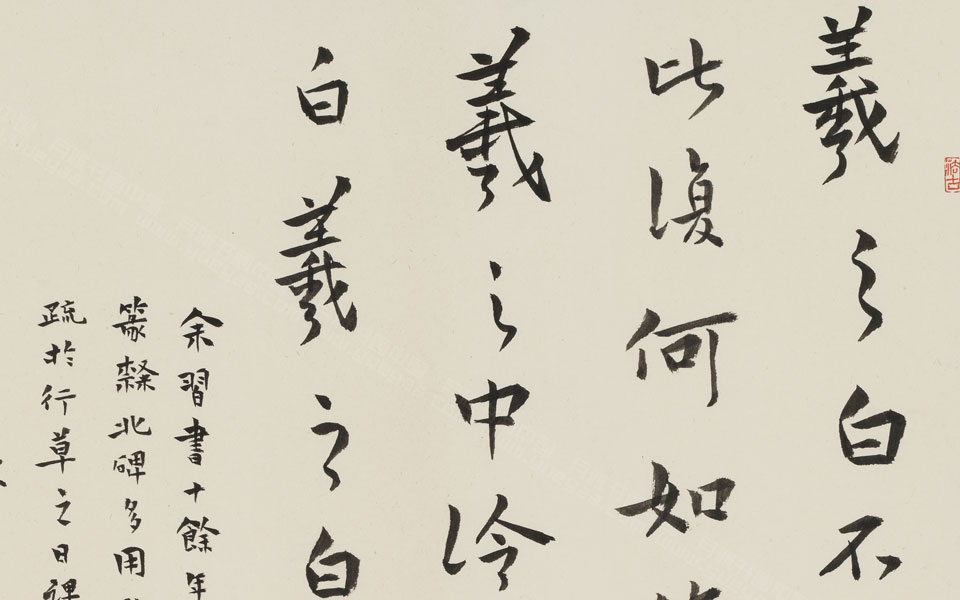 羲之白不
此復何如
羲之中冷
白羲之白
余習書十餘年
篆隸北碑多用
疏於行草之日